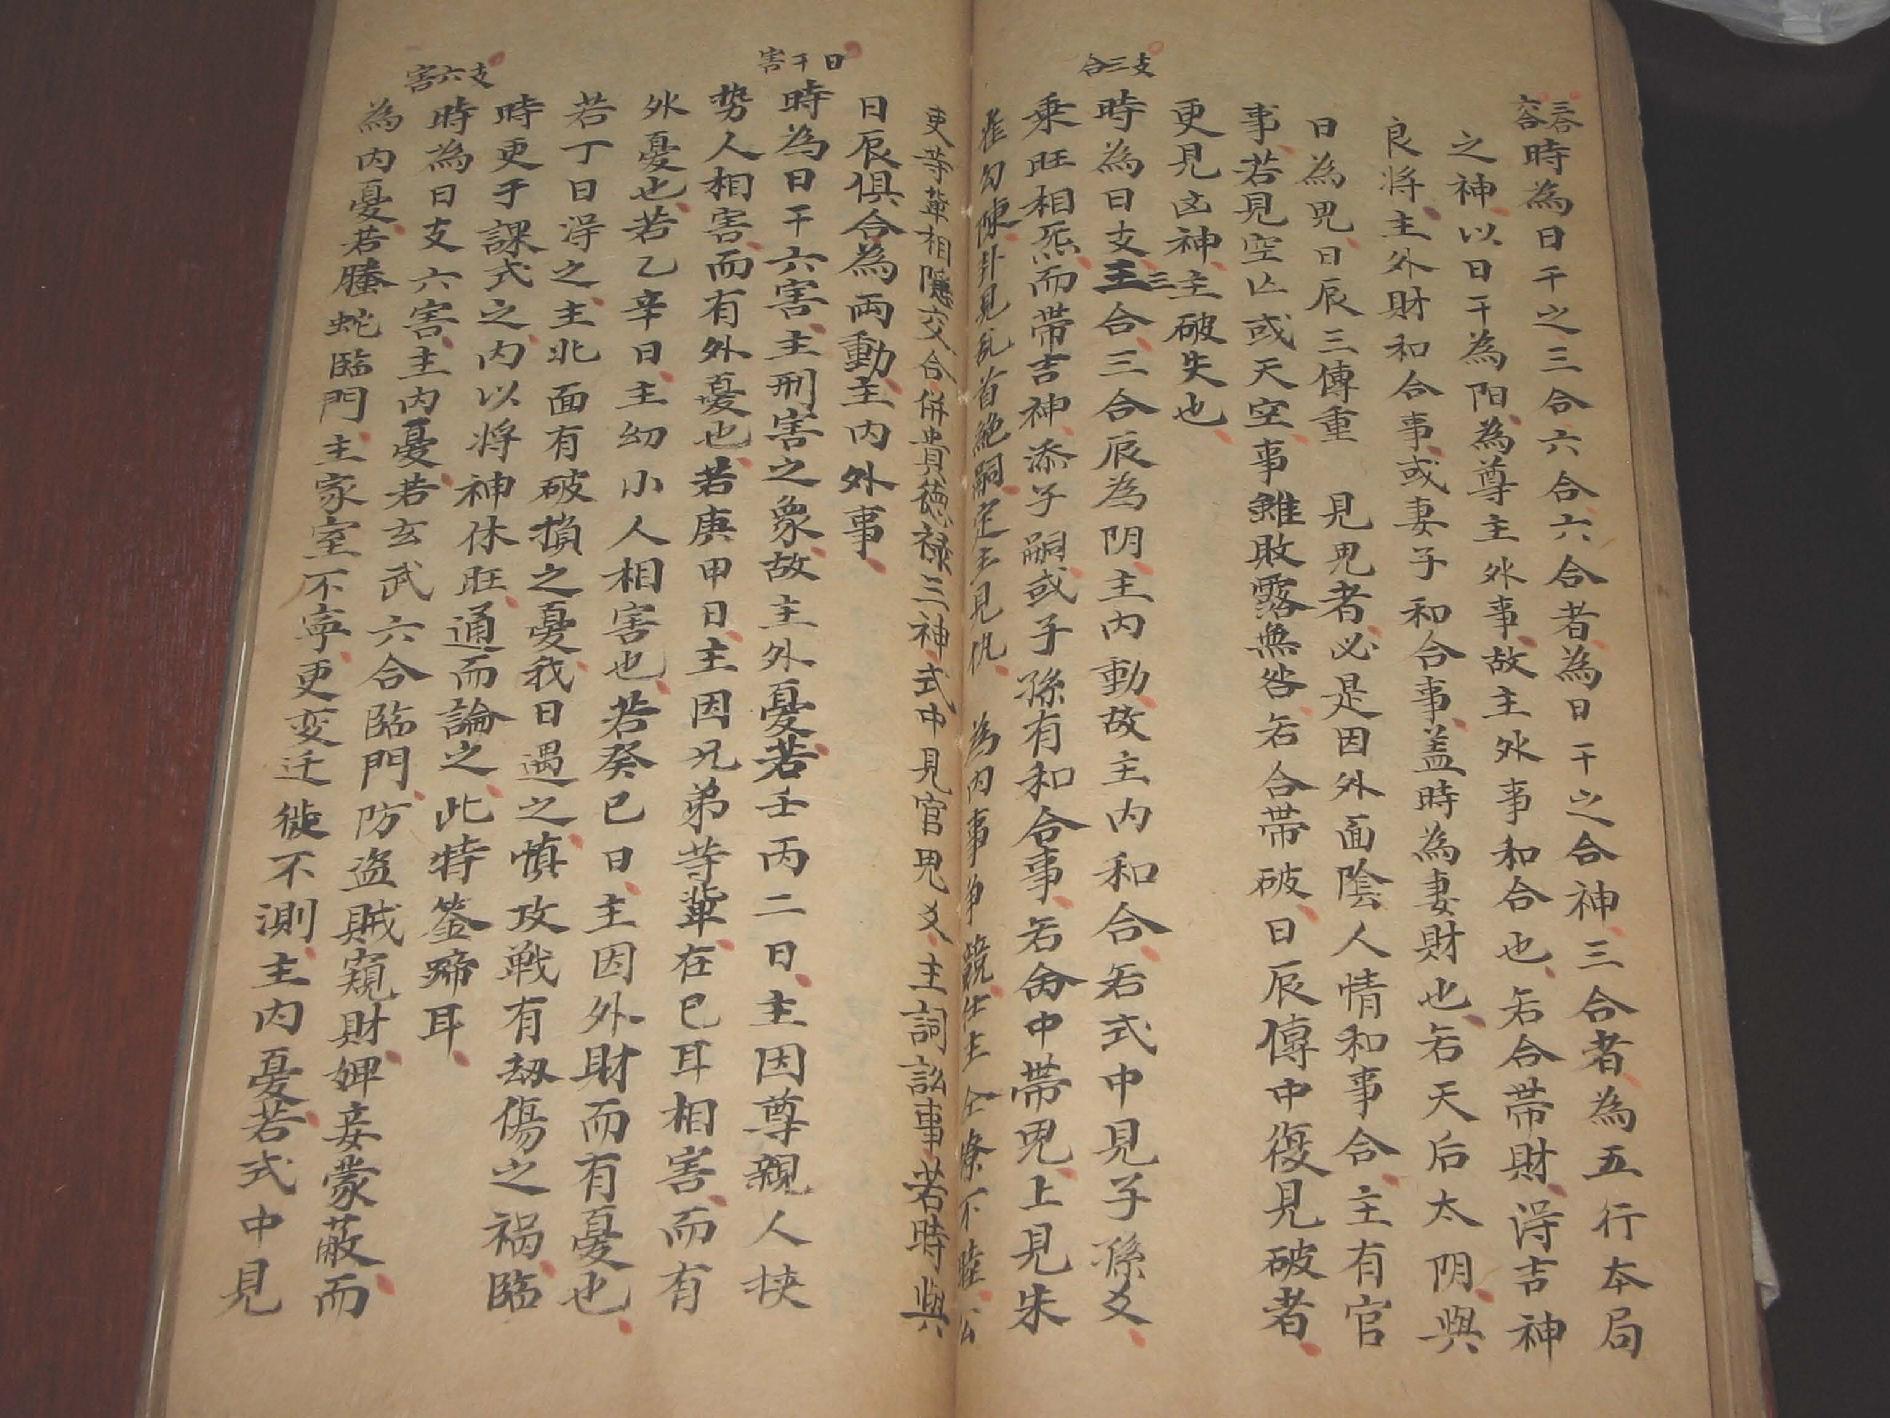 三合六合
時為日干之三合六合六合者為日干之合神三合者為五行本局
之神以日干為阳為尊主外事故主外事和合也若合带財得吉神
良将主外財和合事或妻子和合事盖時為妻財也若天后太阴與
日為鬼日辰三傳重 見鬼者必是因外面陰人情和事合主有官
事若見空亡或天空事雖敗露無咎若合帶破日辰傳中復見破者
更見凶神主破失也
支三合
時為日支主三合三合辰為阴主内動故主内和合若式中見子孫爻
乘旺相炁而帶吉神添子嗣或子孫有和合事若合中帶鬼上見朱
雀勾陳卦見乱首絶嗣定主見仇 為内事争競仕主仝寮不睦公
吏等輩相隱交合併貴德禄三神式中見官鬼爻主詞訟事若時與
日辰俱合為両動主内外事
日干害
時為日干六害主刑害之象故主外憂若壬丙二日主因尊親人挟
势人相害而有外憂也若庚甲日主因兄弟等輩在已耳相害而有
外憂也若乙辛日主幻小人相害也若癸已日主因外財而有憂也
若丁日得之主北面有破損之憂我日遇之慎攻戰有刼傷之禍臨
時更于課式之内以将神休旺通而論之此特签蹄耳
支六害
時為日支六害主内憂若玄武六合臨門防盗賊窺財婢妾蒙蔽而
為内憂若螣蛇臨門主家室不寧更变迁徙不測主内憂若式中見